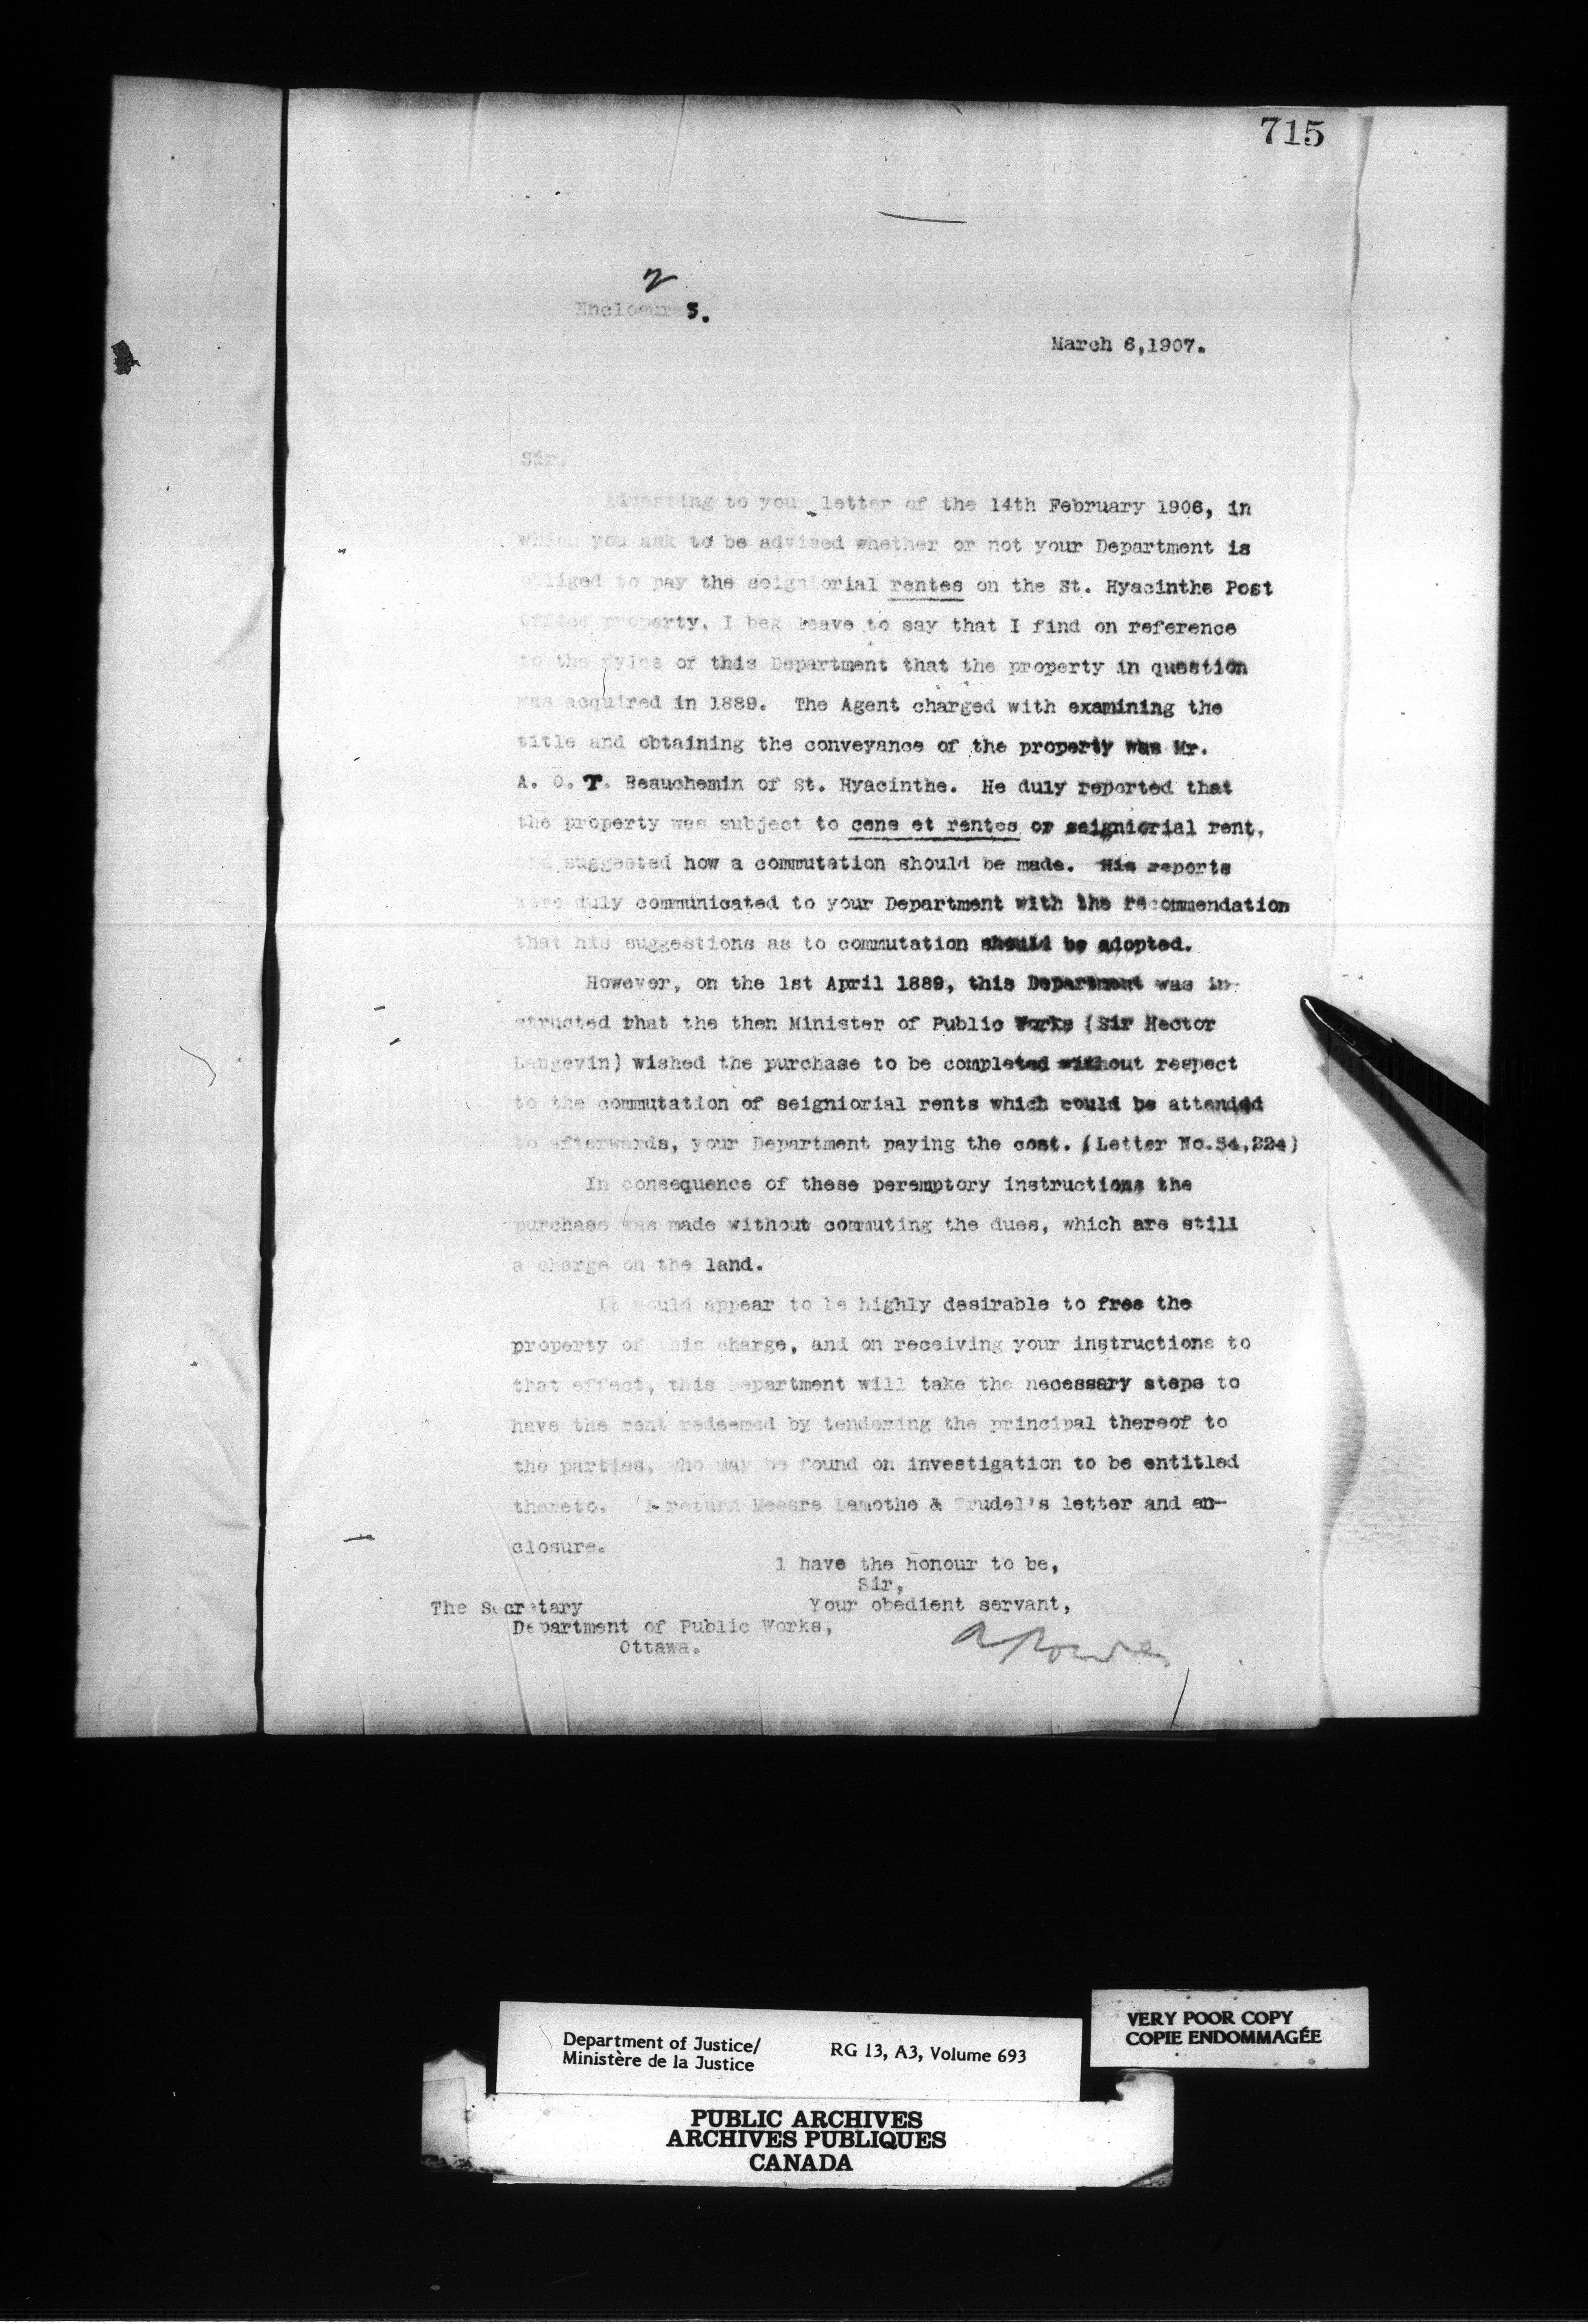 715
2
Enclosures.
March 6,1907.
Sir,
Adverting to your letter of the 14th February 1906, in
which you ask to be advised whether or not your Department is
obliged to pay the seigniorial rentes on the St. Hyacinthe Post
Office property, I beg leave to say that I find on reference
to the fyles of this Department that the property in question
was acquired in 1889. The Agent charged with examining the
title and obtaining the conveyance of the property was Mr.
A. O. T. Beauchemin of St. Hyacinthe. He duly reported that
the property was subject to cens et rentes or seigniorial rent,
and suggested how a commutation should be made. His reports
were duly communicated to your Department with the recommendation
that his suggestions as to commutation should be adopted.
However, on the 1st April 1889, this Department was in-
structed that the then Minister of Public Works (Sir Hector
Langevin) wished the purchase to be completed without respect
to the commutation of seigniorial rents which could be attended
to afterwards, your Department paying the cost. (Letter No.54,224)
In consequence of these peremptory instructions the
purchase was made without commuting the dues, which are still
a charge on the land.
It would appear to be highly desirable to free the
property of this charge, and on receiving your instructions to
that effect, this Department will take the necessary steps to
have the rent redeemed by tendering the principal thereof to
the parties, who may be found on investigation to be entitled
thereto. I return Messrs Lamothe & Trudel's letter and en-
closure.
I have the honour to be,
Sir,
Your obedient servant,
The Secretary
Department of Public Works,
Ottawa.
Department of Justice/
Ministère de la Justice
RG 13, A3, Volume 693
VERY POOR COPY
COPIE ENDOMMAGÉE
PUBLIC ARCHIVES
ARCHIVES PUBLIQUES
CANADA